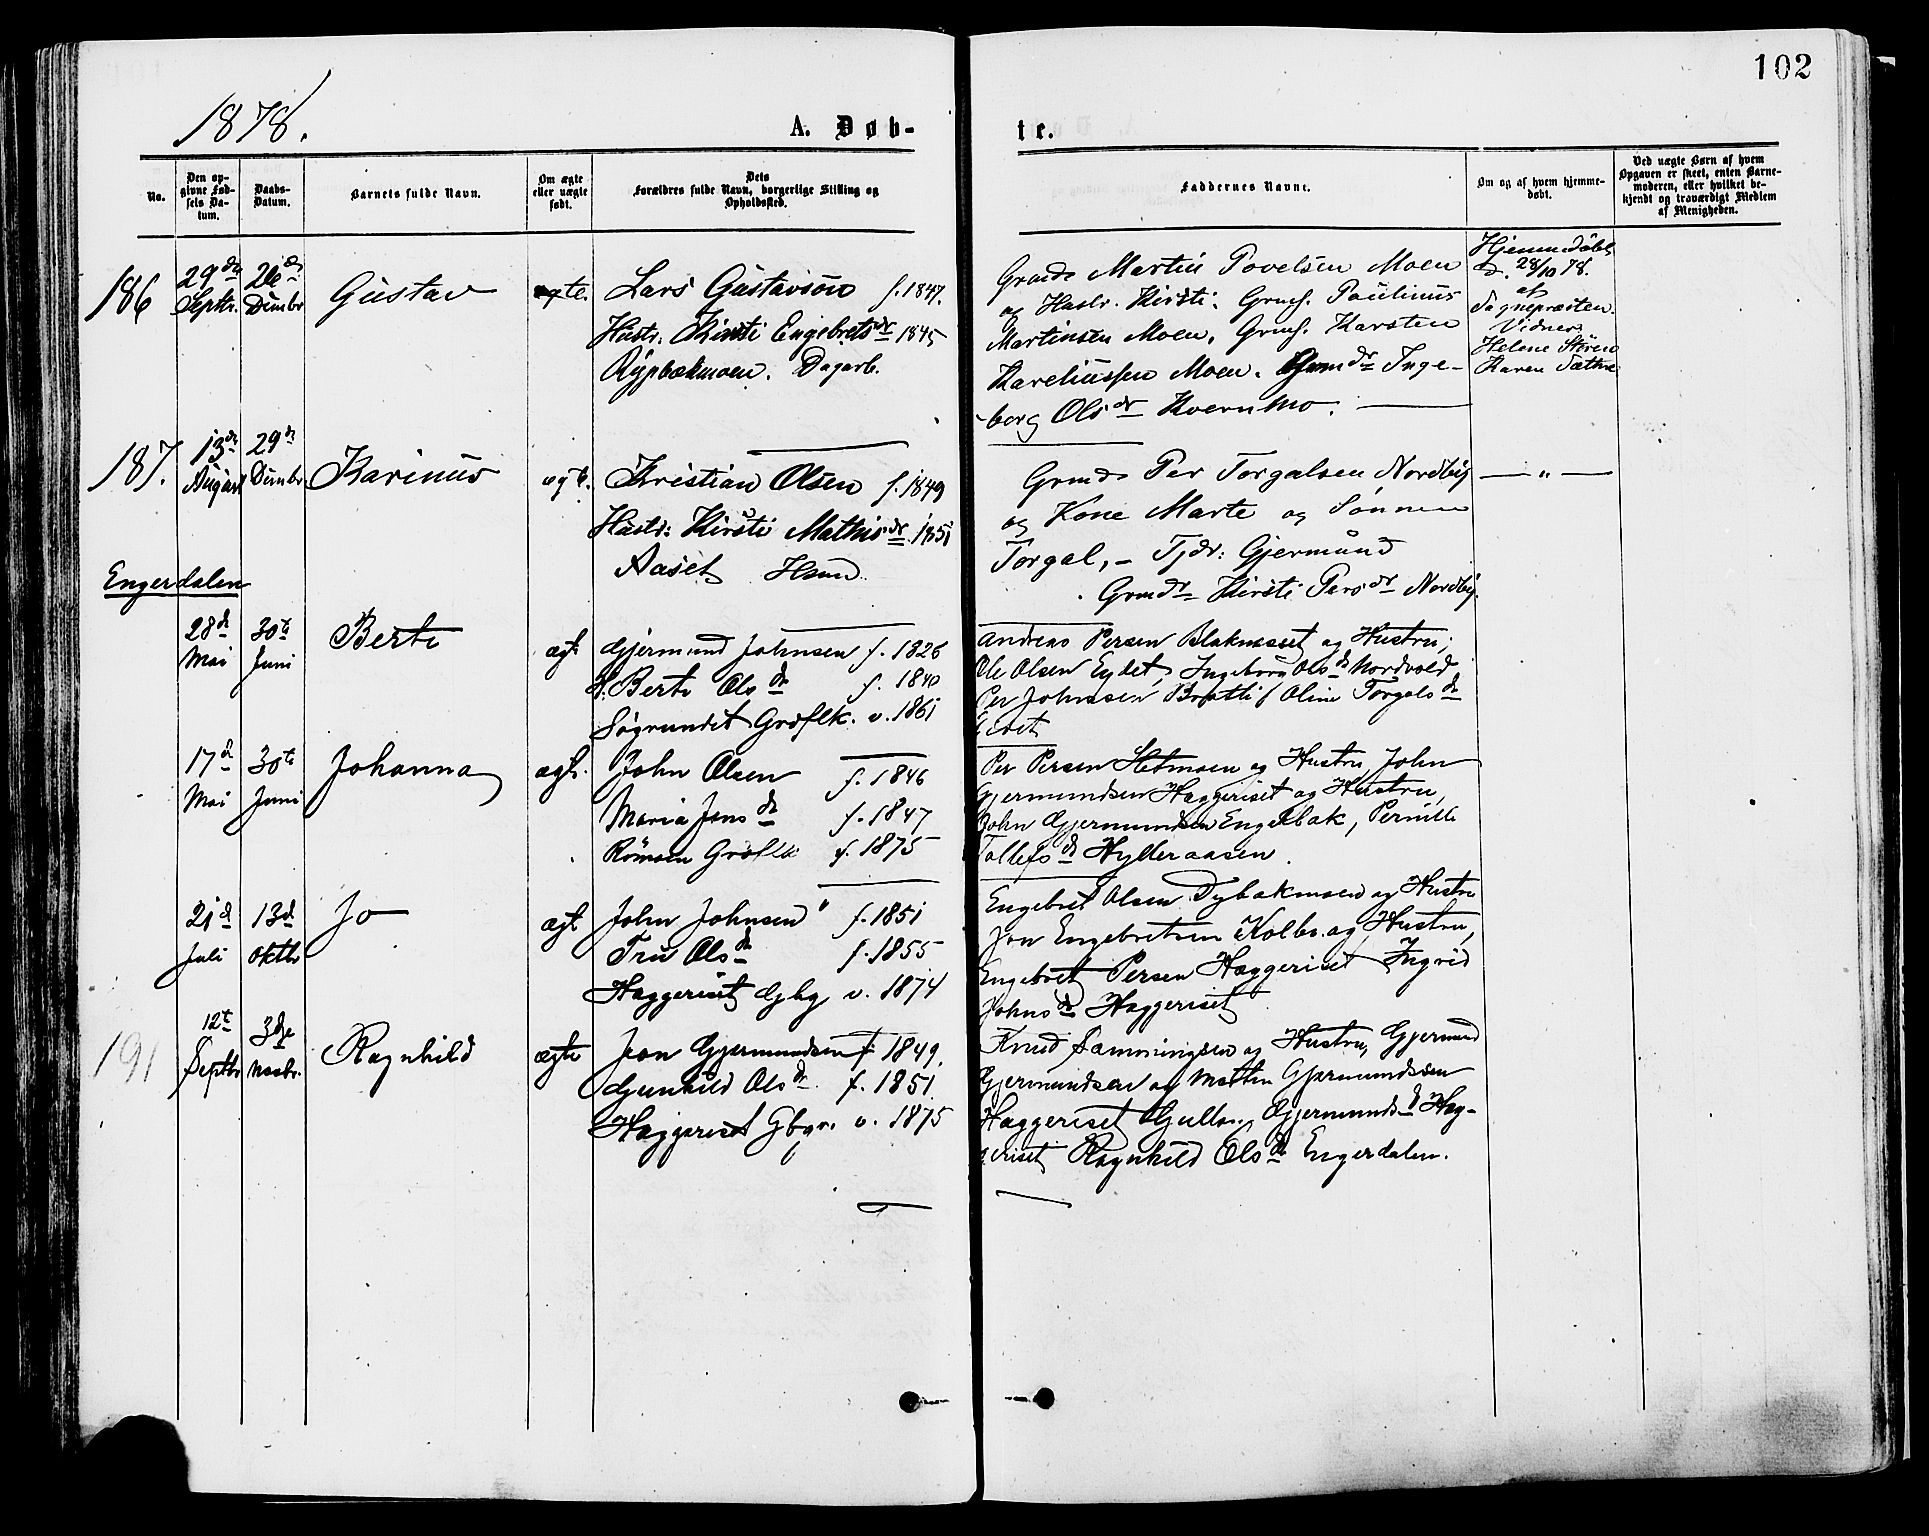 102
1878.
A. Døb-
te.
No.
Den op-
givne Fød-
sels Da-
tum.
Daabs-
Datum.
Barnets fulde Navn.
Om ægte
eller uægte
født.
Dets
Forældres fulde Navn, borgerlige Stilling og
Opholdssted.
Faddernes Navne.
Om og af hvem hjemme-
døbt.
Ved uægte Børn af hvem
Opgaven er skeet, enten Barne-
moderen, eller hvilket be-
kjendt og troværdigt Medlem
af Menigheden.
186
29de
Septr.
26de
Dcmbr
Gustav
ægte.
Lars Gustavson f. 1847.
Hustr. Kirsti Engebretsdr 1845
Rypbækmoen. Dagarb.
Grmds Martin Povelsen Moen
og Hustr. Kirsti. Grmf. Paulinus
Martinsen Moen. Grmf. Karsten
Kareliussen Moen. Grmdr Inge-
borg Olsdr Kvernmo.
Hjemmedøbt
d. 28/10 78.
af
Sognepræsten.
Vidner
Helene Støren
Karen Sæthre
187.
13de
August
29de
Dcmbr
Karinus
ægte.
Kristian Olsen f. 1849
Hustr: Kirsti Mathisdr. 1851
Aaset Hsmd
Grmds Per Torgalsen Nordby
og Kone Marte og Sønnen
Torgal, – Tjdr: Gjermund
Grmdr Kirsti Persdr Nordby.
— " —
Engerdalen
28de
Mai
30te
Juni
Berte
ægt
Gjermund Johnsen f. 1826
H. Berte Olsdr f. 1840
Søgrundet Grdflk. v. 1861
Andreas Persen Blakusset og Hustru,
Ole Olsen Eydet, Ingeborg Olsdr Nordvold
Per Johnsen Bratli, Oline Torgalsdr
17de
Mai
30te
Juni
Johanna
ægt.
John Olsen f. 1846
Maria Jonsdr f. 1847
Rømoen Grdflk v. 1875
Per Persen Hetmoen og Hustru, John
Gjermundsen Haggeriset og Hustru,
John Gjermundsen Engelbak, Pernille
Tollefsdr Hylleraasen.
21de
Juli
13de
Oktbr
Jo
ægt
John Johnsen f. 1851
Tru Olsdr f. 1855
Haggeriset Gbg v. 1874
Engebret Olsen Dybakmoen og Hustru
Jon Engebretsen Kolbo og Hustru,
Engebret Persen Haggeriset Ingrid
Johnsdr Haggeriset
191
12te
Septbr
3die
Novbr.
Ragnhild
ægte
Jon Gjermundsen f 1849.
Gunhild Olsdr. f. 1851.
Haggeriset Gbgr. v. 1875
Knud Samningsen og Hustru, Gjermund
Gjermundsen og Gjermundsen
Haggeriset Gjermundsdr Hag-
geriset Ragnhild Olsdr Engerdalen.